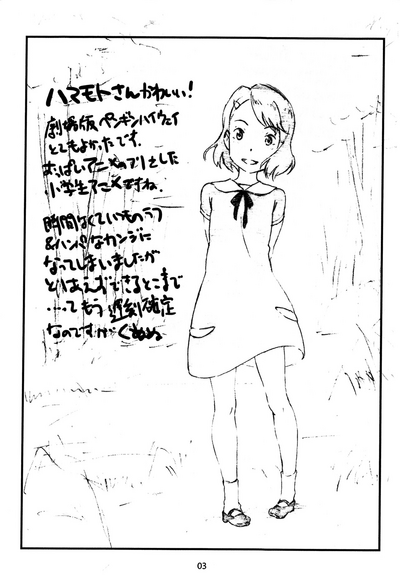 ハマモトさんかわいい!
劇場版 ペンギンハイウェイ
とてもよかったです.
おっぱいアニメのフリをした
小学生アニメですね.
時間なくていつものラフ
&ハンパなカンジに
なってしまいましたが
とりあえずできるとこまで
…てもう遅刻確定
なのですが ぐぬぬ
03